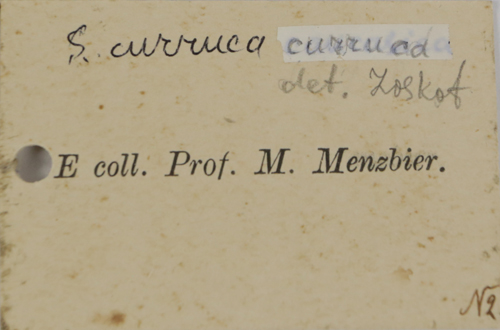 S. curruca curruca
det. Loskot
E coll. Prof. M. Menzbier.
№